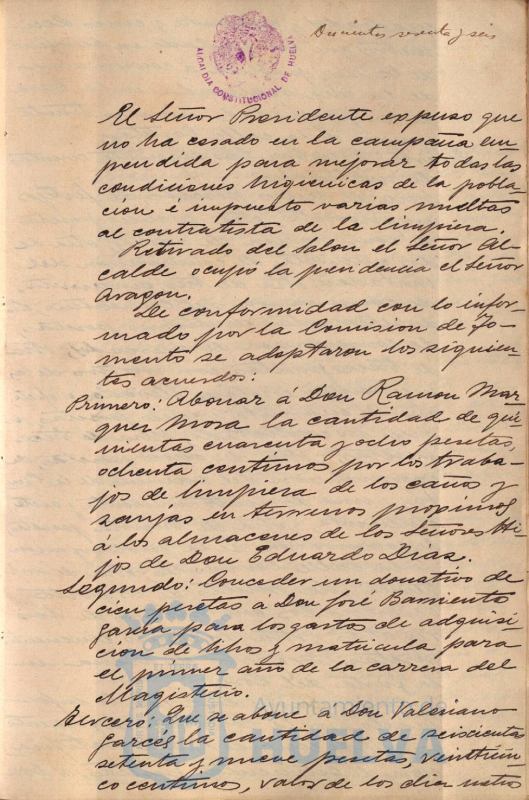 Doscientos sesenta y seis
ALCALDIA CONSTITUCIONAL DE HUELVA
El Señor Presidente expuso que
no ha cesado en la campaña em-
prendida para mejorar todas las
condiciones higienicas de la pobla-
cion é impuesto varias multas
al contratista de la limpieza.
Retirado del Salon el Señor Al-
calde ocupó la presidencia el Señor
Aragon.
De conformidad con lo infor-
mado por la Comision de Fo-
mento se adoptaron los siguien-
tes acuerdos:
Primero: Abonar á Don Ramon Mar-
quez Mora la cantidad de qui-
nientas cuarenta y ocho pesetas,
ochenta centimos por los traba-
jos de limpieza de los caños y
zanjas en terrenos proximos
á los almacenes de los Señores Hi-
jos de Don Eduardo Diaz.
Segundo: Conceder un donativo de
cien pesetas á Don José Barriento
Garcia para los gastos de adquisi-
cion de libros y matricula para
el primer año de la carrera del
Magisterio.
Tercero: Que se abone á Don Valeriano
Garcés la cantidad de seiscientas
setenta y nueve pesetas, veinticin-
co centimos, valor de los dias
Ayuntamiento de
HUELVA